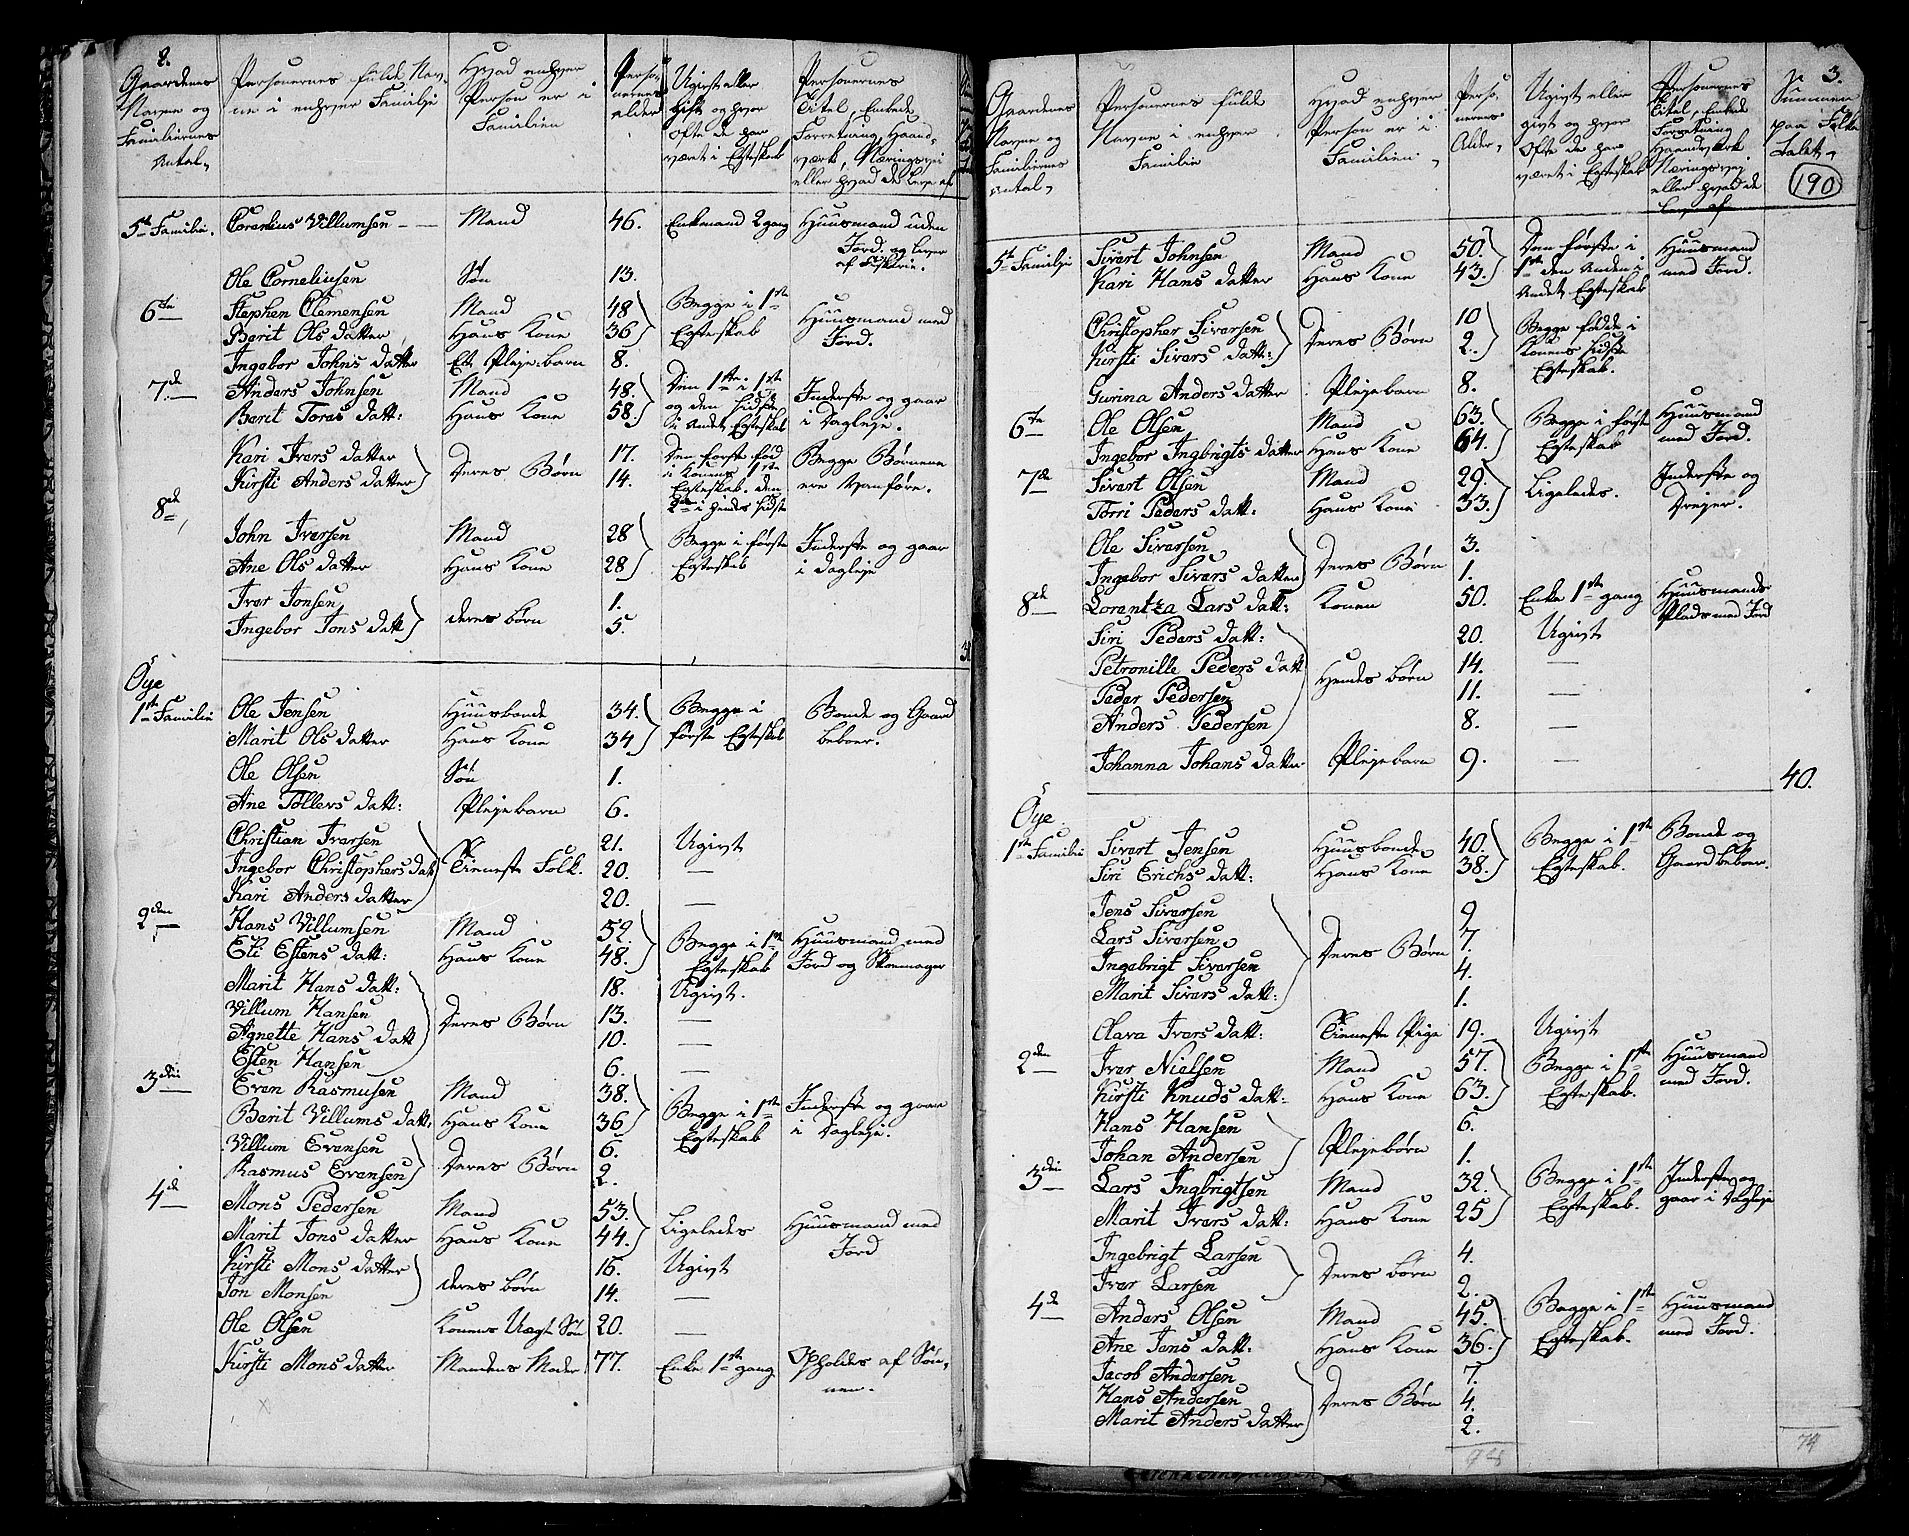 2.
Gaardenes Navne og Familiernes Antal,
Personernes fulde Navne i enhver Familie
Hvad enhver Person er i Familien
Personernes alder
Ugivt eller givt og hvor ofte de har været i Egteskab
Personernes Titel, Embede Forretning, Haandværk, Næringsvei eller hvad de lever af
5te Familie. Cornelius Villumsen — Mand 46. Enkemand 2 gang Huusmand uden Jord. og lever af Fiskerie.
Ole Corneliusen Søn 13.
6te Stephen Clemensen Mand 48 Begge i 1ste Egteskab Huusmand med Jord.
Berit Ols datter Hans Kone 36
Ingebor Johns datter Et Plejebarn 8.
7de Anders Johnsen Mand 48. Den 1ste i 1ste og den sidste i Andet Egteskab Inderste og gaar i Dagleje.
Berit Tores datt: Hans Kone 58.
Kari Ivers datter Deres Børn 17. Den første fød i Konens 1ste Egteskab. den 2de i hendes sidste Begge Børnene ere Vanføre.
Kirsti Anders datter 14.
8de
John Iversen Mand 28 Begge i første Egteskab Inderste og gaar i Dagleje
Ane Ols datter Hans Kone 28
Iver Jonsen deres børn 1.
Ingebor Jons datt 5.
Øye
1ste Familie Ole Jensen Huusbonde 34. Begge i første Egteskab Bonde og Gaard beboer.
Marit Ols datter Hans Kone 34
Ole Olsen Søn 1.
Ane Tollevs datt: Plejebarn 6.
Christian Iversen Tieneste Folk. 21. Ugivt
Ingebor Christophers datt 20. —
Kari Anders datter 20. —
2den Hans Villumsen Mand 52. Begge i 1ste Egteskab Huusmand med Jord og Skoemager
Eli Estens datt: Hans Kone 48.
Marit Hans datt: Deres Børn 18. Ugivt.
Villum Hansen 13. —
Agnette Hans datt 10. —
Esten Hansen 6. —
3die Even Rasmusen Mand 38. Begge i 1ste Egteskab Inderste og gaar i Dagleje.
Berit Villums datt: Hans Kone 36
Villum Evensen Deres Børn 6.
Rasmus Evensen 2.
4de Mons Pedersen Mand 53. Ligeledes Huusmand med Jord
Marit Jons datter Hans Kone 44.
Kirsti Mons datter deres børn 16. Ugivt
Jon Monsen 14. —
Ole Olsen Konens Uægte Søn 20. —
Kirsti Mons datter Mandens Moder 77. Enke 1ste gang Opholdes af Sønnen.
3.
Gaardenes Navne og Familiernes Antal,
Personernes fulde Navne i enhver Familie
Hvad enhver Person er i Familien,
Personernes Alder,
Ugivt eller givt og hvor Ofte de har været i Egteskab
Personernes Titel, Embede Forretning Haandværk Næringsvej eller hvad de lever af
Summen paa Folke Talet,
190
5te Familie Sivert Johnsen Mand 50. Den første i 1ste den Anden i Andet Egteskab Huusmand med Jord.
Kari Hans datter Hans Kone 43.
Christopher Siversen Deres Børn 10 Begge fødde i Konens sidste Egteskab.
Kirsti Sivers datt: 2.
Gurina Anders datter Plejebarn 8.
6te Ole Olsen Mand 63. Begge i første Egteskab Huusmand med Jord.
Ingebor Ingbrigts datter Hans Kone 64.
7de Sivert Olsen Mand 29. Ligeledes. Inderste og Drejer.
Torri Peders datt: Hans Kone 33.
Ole Siversen Deres Børn 3.
Ingebor Sivers datter 1.
8de Lorentza Lars datt: Konen 50. Enke 1ste gang Huusmands Plads med Jord
Siri Peders datt: Hendes børn 20. Ugivt
Petronille Peders datt 14. —
Peder Pedersen 11. —
Anders Pedersen 8. —
Johanna Johans datter Plejebarn 9. —
40.
Øye.
1ste Familie Sivert Jensen Huusbonde 40. Begge i 1ste Egteskab. Bonde og Gaard beboer.
Siri Erichs datt: Hans Kone 38.
Jens Siversen Deres Børn 9
Lars Siversen 7.
Ingebrigt Siversen 4.
Marit Sivers datt: 1.
Clara Ivers datt: Tieneste Pige 19. Ugivt
2den Iver Nielsen Mand 57. Begge i 1ste Egteskab. Huusmand med Jord.
Kirsti Knuds datt: Hans Kone 63.
Hans Hansen Plejebørn 6.
Johan Andersen 1.
3die Lars Ingbrigtsen Mand 32. Begge i 1ste Egteskab. Inderste og gaar i Dagleje
Marit Ivers datt: Hans Kone 25
Ingebrigt Larsen Deres børn 4.
Iver Larsen 2.
4de Anders Olsen Mand 45. Begge i 1ste Egteskab. Huusmand med Jord.
Ane Jens datt: Hans Kone 36.
Jacob Andersen Deres Børn 7.
Hans Andersen 4.
Marit Anders datter 2.
74